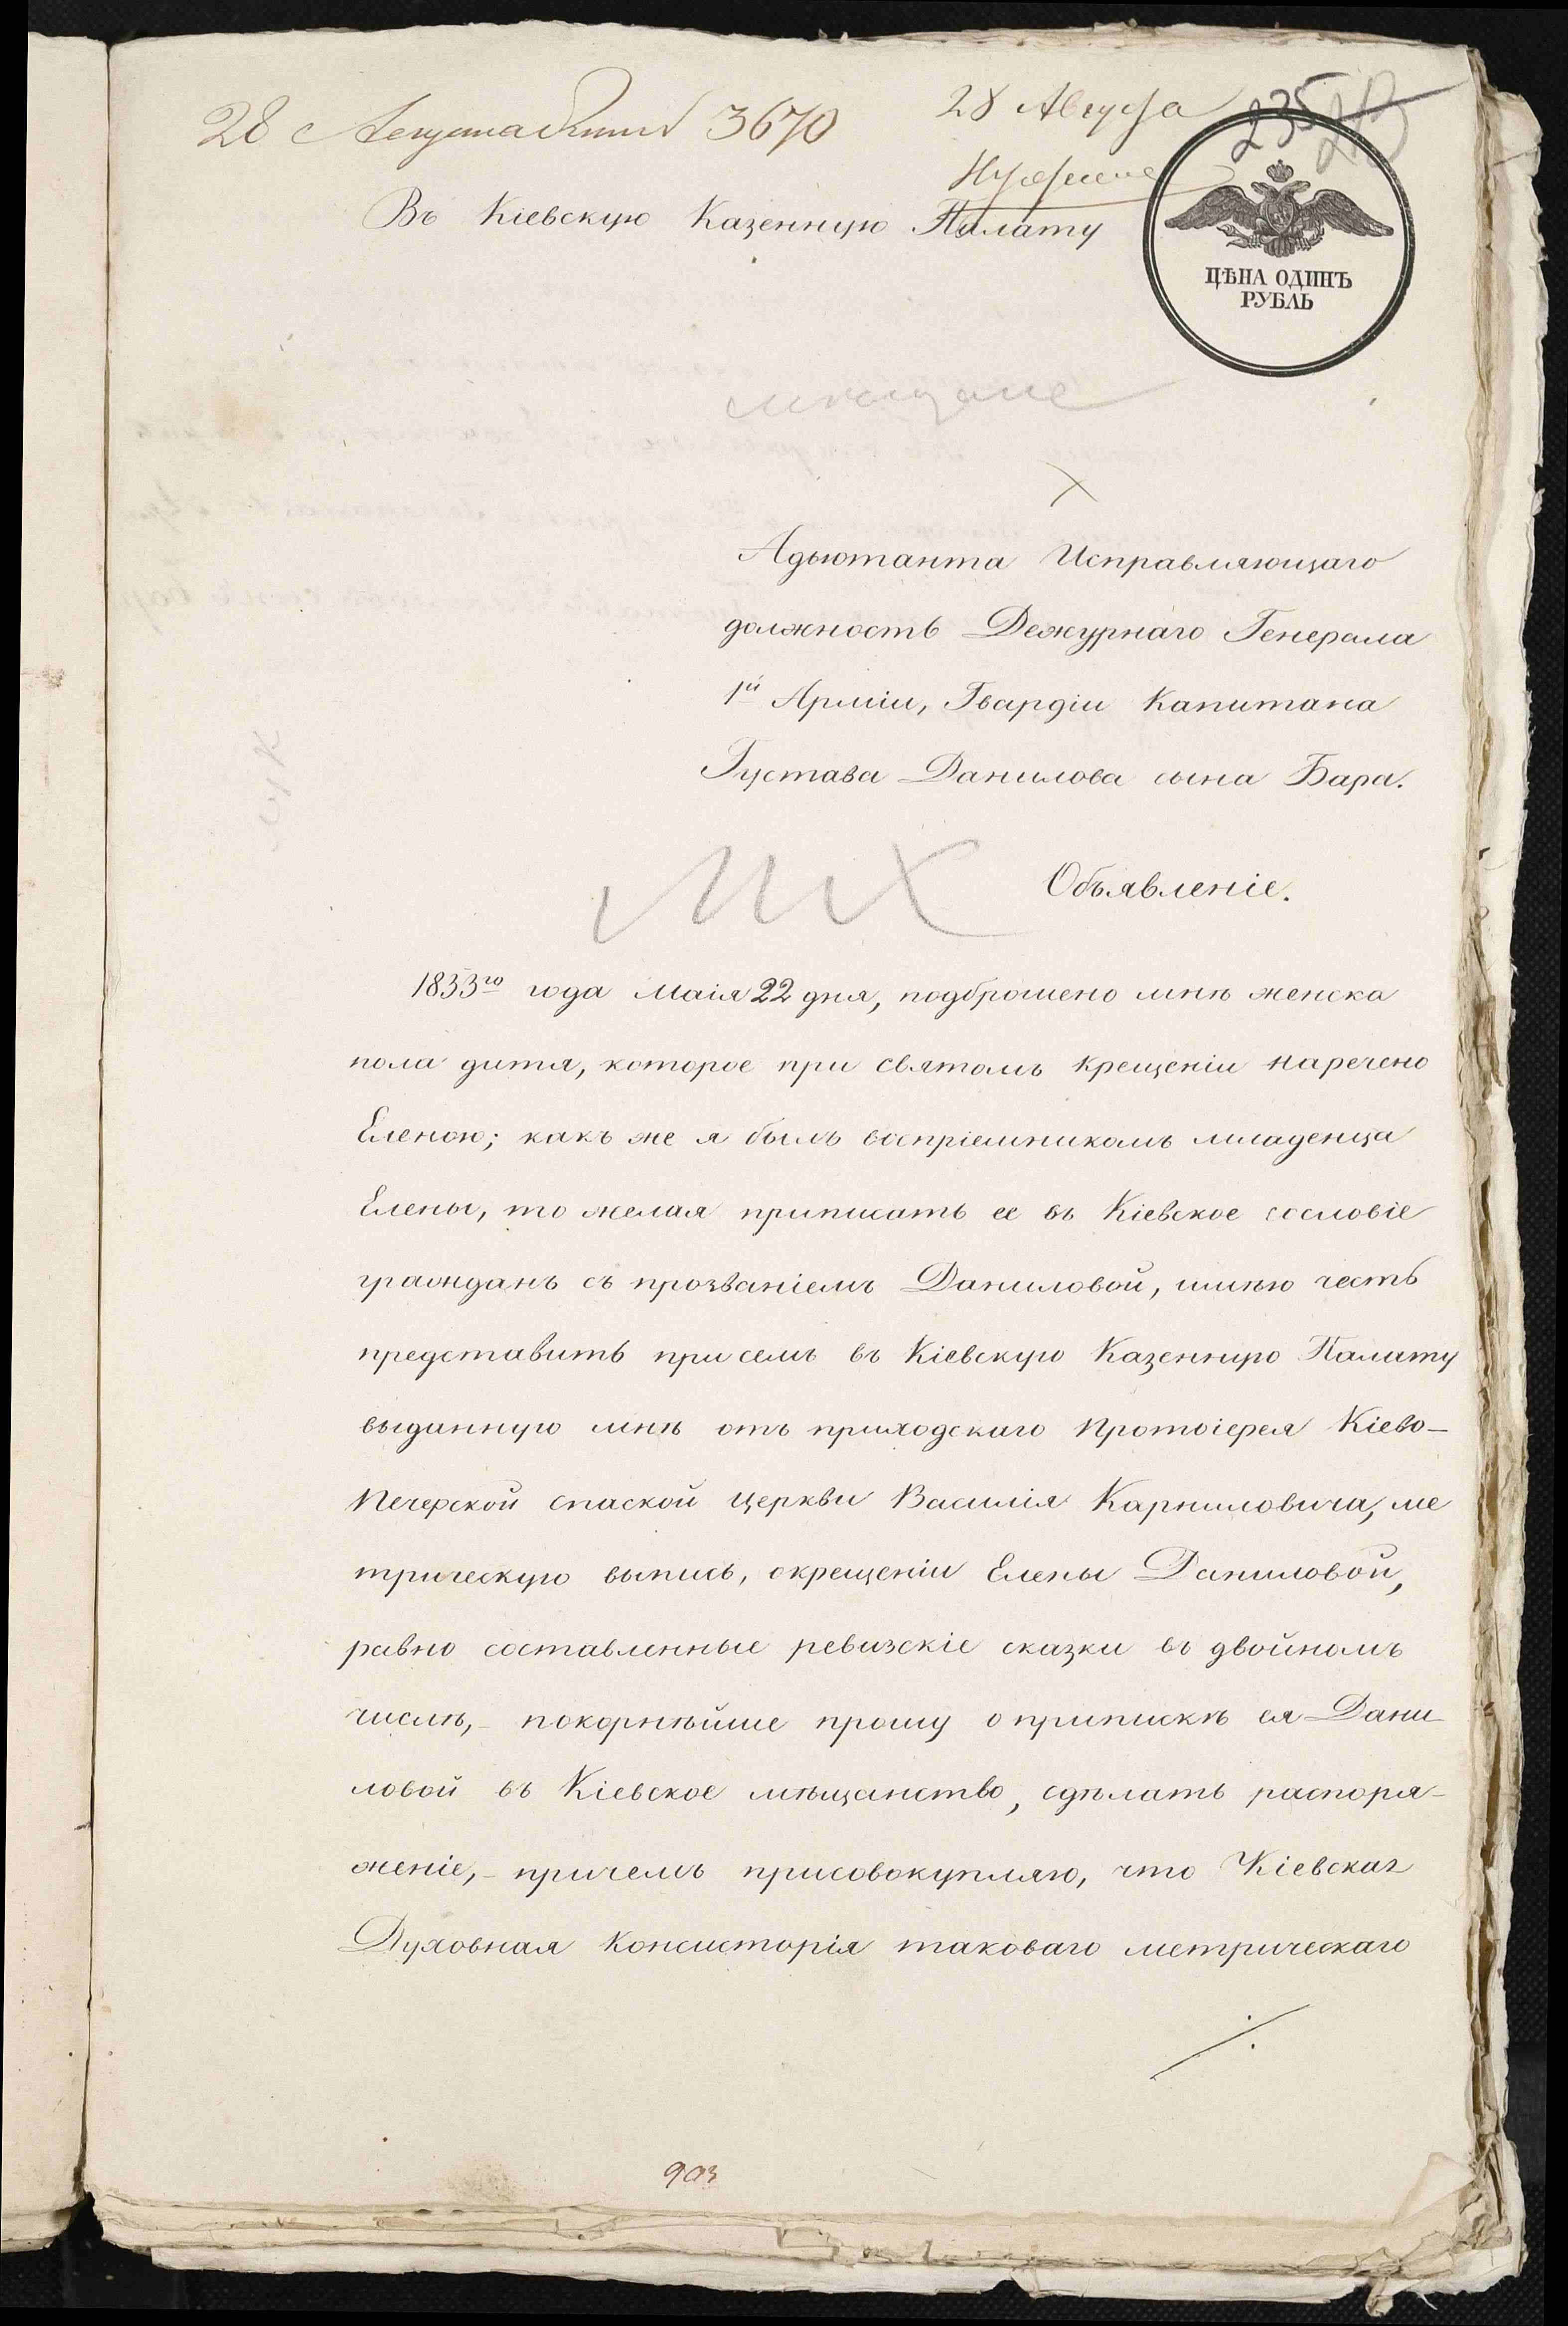 28 Августа 3670
28 Августа
235
Въ Кіевскую Казенную Палату
ЦѢНА ОДИНЪ
РУБЛЬ
мѣщане
Адьютанта Исправляющаго
должность Дежурнаго Генерала
1й Арміи, Гвардіи Капитана
Густава Данилова сына Бара.
Объявленіе.
1833го года Маія 22 дня, подброшено мнѣ женска
пола дитя, которое при святомъ крещеніи наречено
Еленою; какъ же я былъ воспріемникомъ младенца
Елены, то желая приписать ее въ Кіевское сословіе
гражданъ съ прозваніемъ Даниловой, имѣю честь
представить при семъ въ Кіевскую Казенную Палату
выданную мнѣ отъ приходскаго Протоіерея Кіево-
Печерской спаской церкви Василія Карниловича, ме
трическую выпись, о крещеніи Елены Даниловой,
равно составленные ревизскіе сказки въ двойномъ
числѣ,- покорнѣйше прошу о припискѣ ея Дани
ловой въ Кіевское мѣщанство, сдѣлать распоря-
женіе,- причемъ присовокупляю, что Кіевская
Духовная Консисторія таковаго метрическаго
903